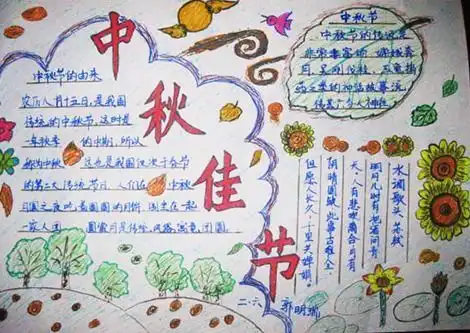 中秋佳节
中秋节的由来
农历八月十五日,是我国
传统的中秋节,这时是
一年秋季 的中期,所以
称为中秋 这也是我国仅次于春节
的第二大传统节日,人们在 中秋
月圆之夜吃着圆圆的月饼,围坐在一起
一家人团
中秋节
中秋节的传说是
非常丰富的,嫦娥奔
月,吴刚伐桂,玉兔捣
药之类的神话故事流
水调歌头 苏轼
明月几时有,把酒问青
天。人有悲欢离合,月有
阴晴圆缺,此事古难全。
但愿人长久,千里共婵娟。
二.六 郭明